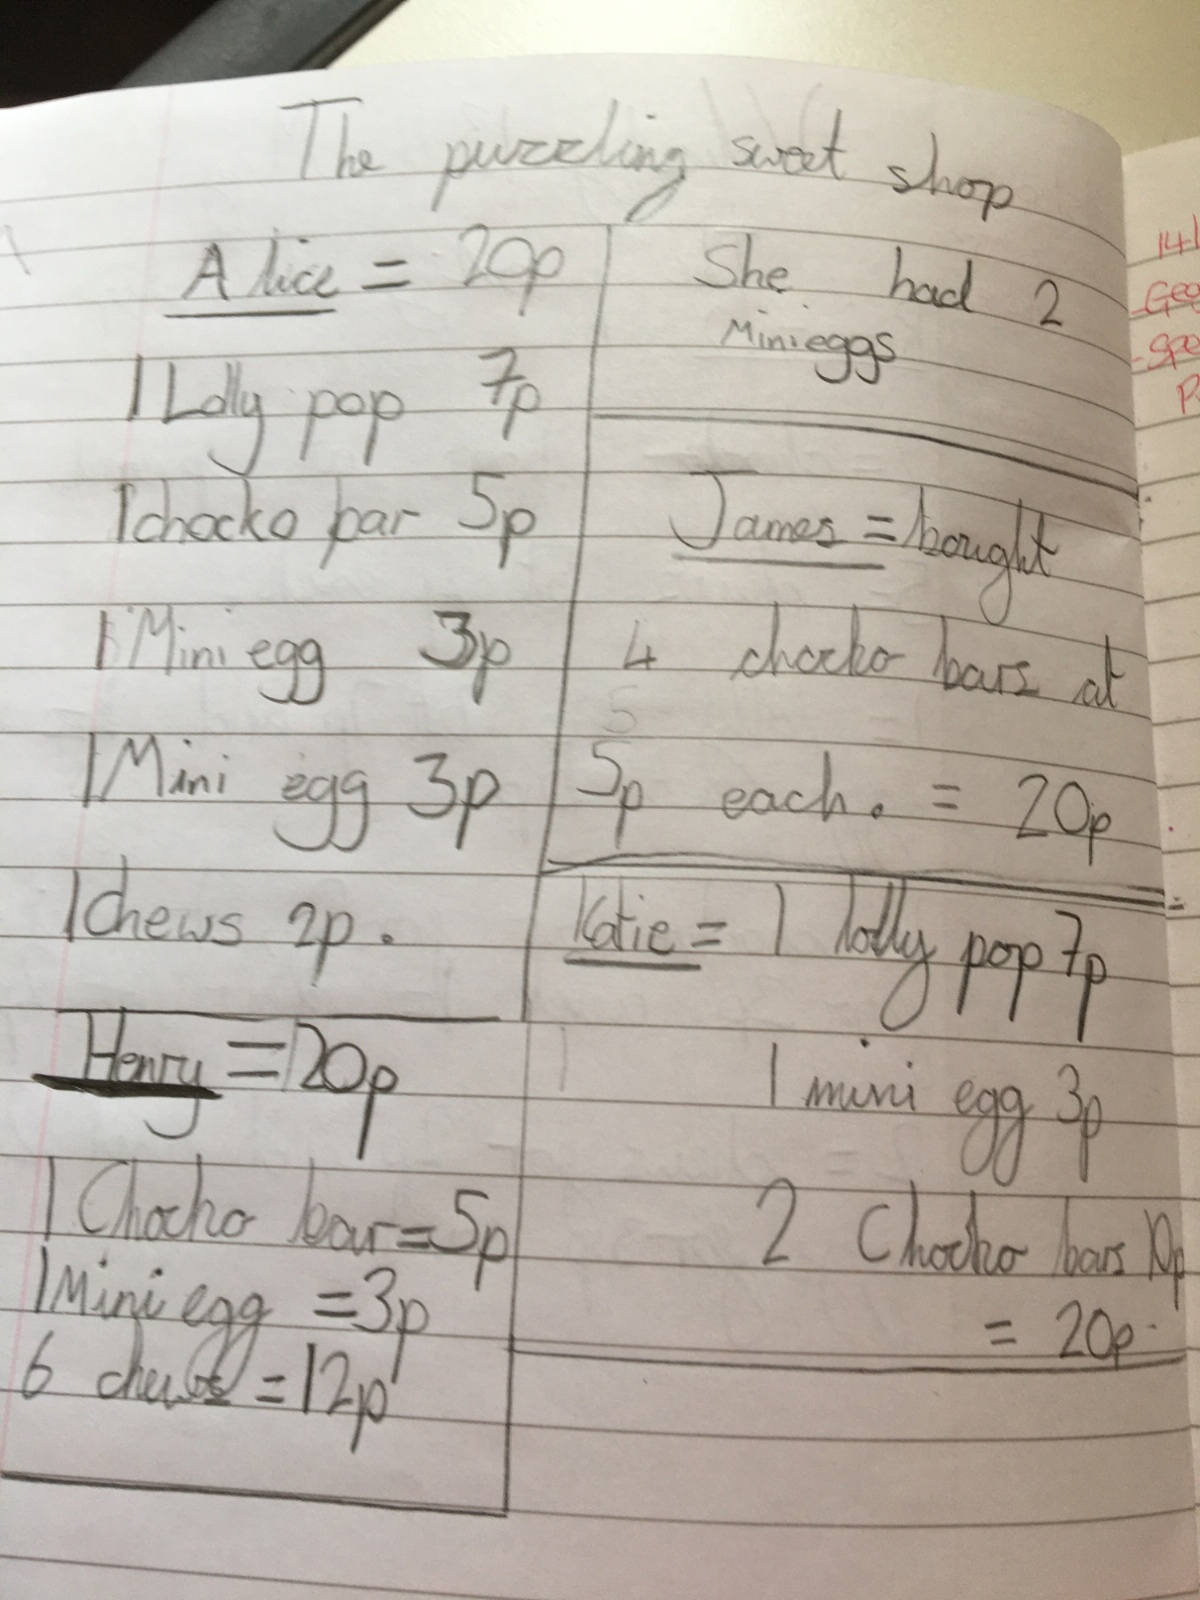 The puzzling sweet shop
Alice = 20p
1 Lolly pop 7p
1 chocko bar 5p
1 Mini egg 3p
1 Mini egg 3p
1 chews 2p.
Henry = 20p
1 Chocko bar = 5p
1 Mini egg = 3p
6 chews = 12p
She had 2
Mini eggs
James = bought
4 chocko bars at
5p each. = 20p
Katie = 1 lolly pop 7p
1 mini egg 3p
2 Chocko bars 10p
= 20p.